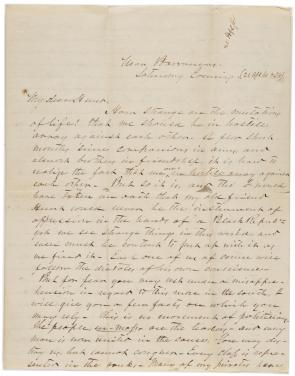 Near Harrison
Saturday Evening
My dear Hunn
How strange are the mutations
of life! that we should be in hostile
array against each other. A few short
months since companions in arms and
almost brothers in friendship, it is hard to
realize the fact, that now, in hostile array against
each other. But so it is, and tho I would
have that my old friend
would ever consent to become the instrument of
oppression in the hands of a Black Repub-
we see strange things in this world and
must be content to put up with it as
we find it. Each one of us of course will
follow the dictates of his own conscience.
But for fear you may act under a misappre-
hension in regard to this move in the South I
will give you a few facts, on which you
may rely. This is no movement of politicians,
the people en-masse are the leaders and every
man is now united in the cause. You may des-
troy us but cannot conquer. Every class is repre-
sented in the ranks. Many of my privates